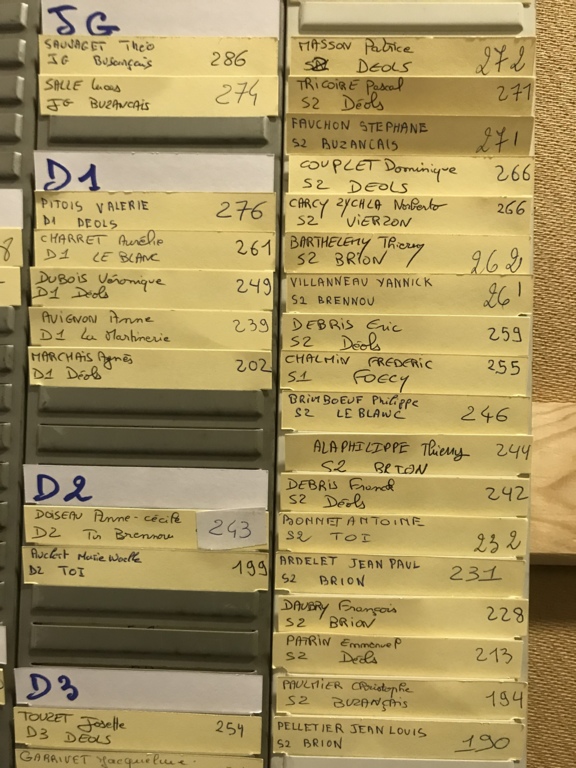 JG
SAUVAGET Théo
JG Busançais 286
SALLE Lucas
JG BUZANCAIS 274
D1
PITOIS VALERIE
D1 DEOLS 276
CHARRET Aurélie
D1 LE BLANC 261
DUBOIS Véronique
D1 Déols 249
AVIGNON Anne
D1 La Martinerie 239
MARCHAIS Agnès
D1 Déols 202
D2
DOISEAU Anne-Cécile
D2 Tir Brennou 243
Marie
D2 TOI 199
D3
TOUZET Josette
D3 DEOLS 254
GARRIVET Jacqueline
8
MASSON Patrice
S2 DEOLS 272
TRICOIRE Pascal
S2 Déols 271
FAUCHON STEPHANE
S2 BUZANCAIS 271
COUPLET Dominique
S2 DEOLS 266
CARCY ZYCHLA Norberto
S2 VIERZON 266
BARTHELEMY Thierry
S2 BRION 262
VILLANNEAU YANNICK
S2 BRENNOU 261
DEBRIS Eric
S2 Déols 259
CHALMIN FREDERIC
S1 FOECY 255
BRIMBOEUF Philippe
S2 LE BLANC 246
ALAPHILIPPE Thierry
S2 BRION 244
DEBRIS Franck
S2 Déols 242
BONNET ANTOINE
S2 TOI 232
ARDELET JEAN PAUL
S2 BRION 231
DAUBRY François
S2 BRION 228
PATRIN Emmanuel
S2 Deols 213
PAULMIER Christophe
S2 BUZANÇAIS 194
PELLETIER JEAN LOUIS
S2 BRION 190